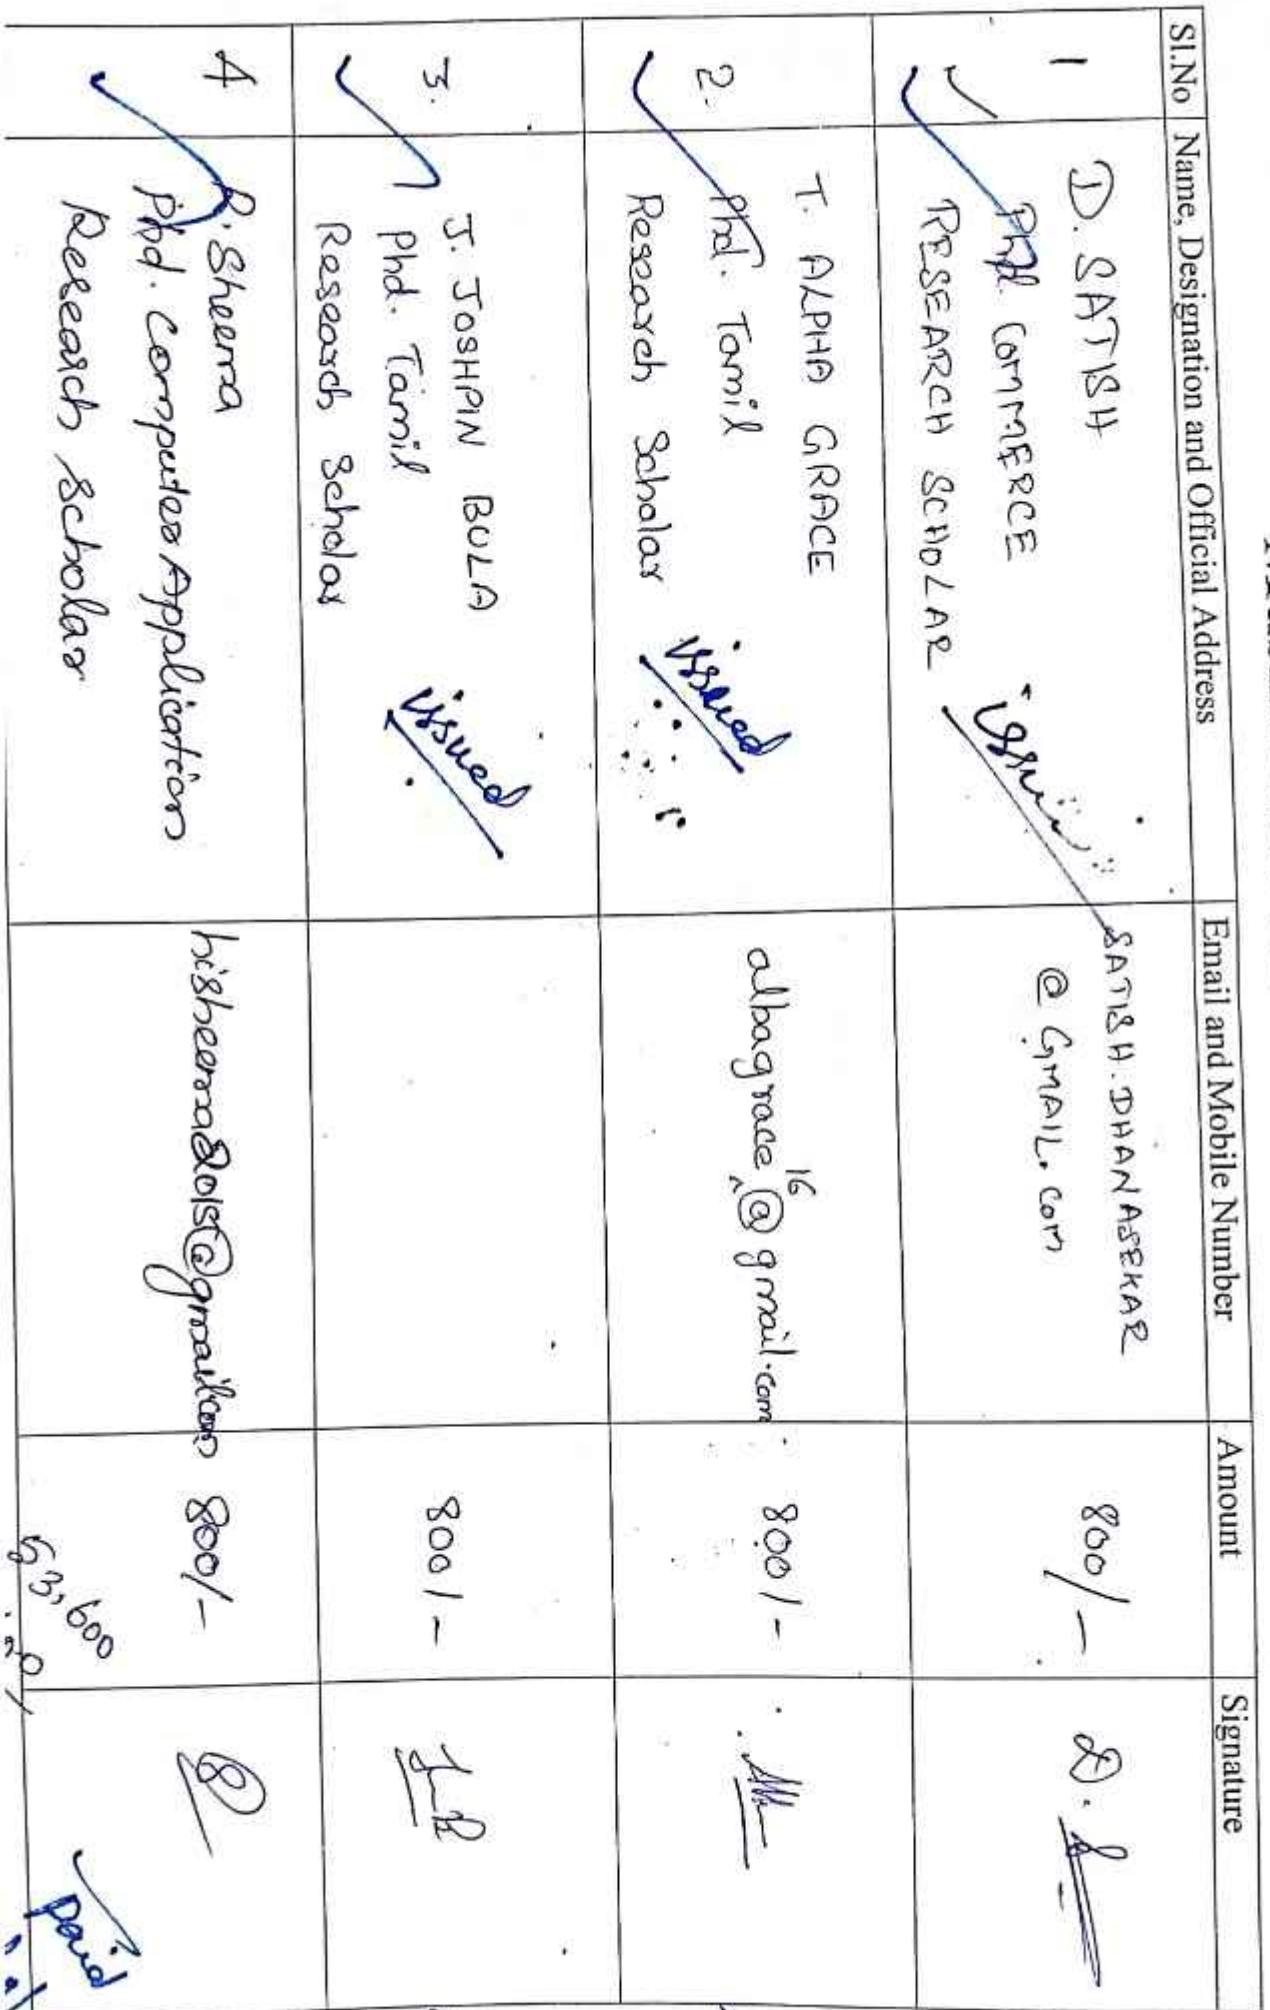 Sl.No Name, Designation and Official Address Email and Mobile Number Amount Signature
1 D. SATISH
Phd. COMMERCE
RESEARCH SCHOLAR
SATISH.DHANASEKAR
@ GMAIL.COM
800/-
D.
2. T. ALPHA GRACE
Phd. Tamil
Research Scholar
issued
albagrace16@gmail.com
800/-
3. J. JOSHPIN BULA
Phd. Tamil
Research Scholar
issued
800/-
4 P. Sheema
Phd. Computer Application
Research Scholar
hisheema2015@gmail.com
800/-
63,600
paid